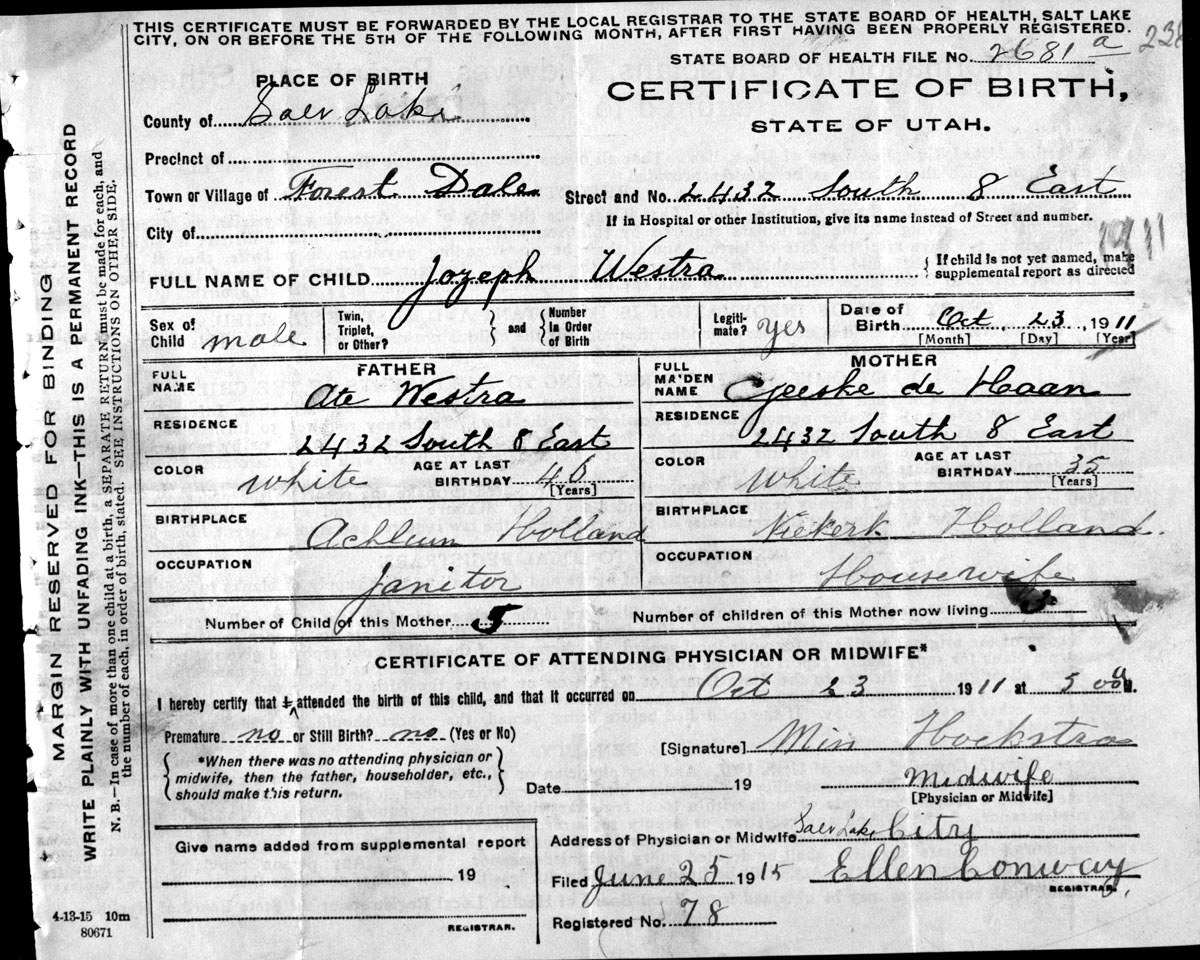 THIS CERTIFICATE MUST BE FORWARDED BY THE LOCAL REGISTRAR TO THE STATE BOARD OF HEALTH, SALT LAKE
CITY, ON OR BEFORE THE 5TH OF THE FOLLOWING MONTH, AFTER FIRST HAVING BEEN PROPERLY REGISTERED.
STATE BOARD OF HEALTH FILE No. 2681 a
PLACE OF BIRTH
CERTIFICATE OF BIRTH,
County of Salt Lake
STATE OF UTAH.
Precinct of
Town or Village of Forest Dale Street and No. 2432 South 8 East
If in a Hospital or other Institution, give its name instead of Street and number.
City of
1911
FULL NAME OF CHILD Jozeph Westra { If child is not yet named, make
supplemental report as directed
Sex of Child male Twin, Triplet, or Other? { and { Number In Order of Birth Legiti-mate? yes Date of Birth Oct 23, 1911
[Month] [Day] [Year]
FATHER MOTHER
FULL NAME Ate Westra FULL MAIDEN NAME Geeske de Haan
RESIDENCE 2432 South 8 East RESIDENCE 2432 South 8 East
COLOR white AGE AT LAST BIRTHDAY 46 [Years] COLOR White AGE AT LAST BIRTHDAY 35 [Years]
BIRTHPLACE Achlum Holland BIRTHPLACE Niekerk Holland.
OCCUPATION Janitor OCCUPATION Housewife
Number of Child of this Mother 5 Number of children of this Mother now living
CERTIFICATE OF ATTENDING PHYSICIAN OR MIDWIFE*
I hereby certify that I attended the birth of this child, and that it occurred on Oct 23 1911 at 5 00 a m.
Premature no or Still Birth? no (Yes or No)
[Signature] Min Hoekstra
{ *When there was no attending physician or
midwife, then the father, householder, etc.,
should make this return. }
Date 19 Midwife
[Physician or Midwife]
Address of Physician or Midwife Salt Lake City
Give name added from supplemental report
19
REGISTRAR.
Filed June 25 1915 Ellen Conway
REGISTRAR.
Registered No. 78
4-13-15 10m
80671
MARGIN RESERVED FOR BINDING
WRITE PLAINLY WITH UNFADING INK—THIS IS A PERMANENT RECORD
N. B.—In case of more than one child at a birth, a SEPARATE RETURN must be made for each, and
the number of each, in order of birth, stated. SEE INSTRUCTIONS ON OTHER SIDE.